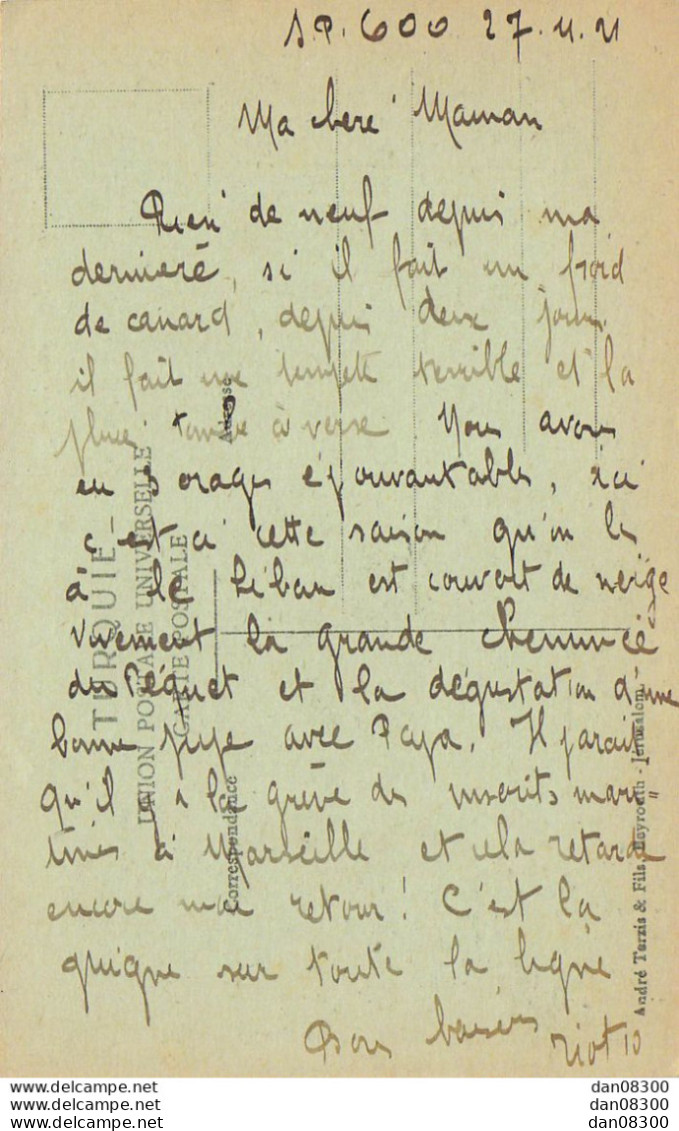 SP. 600 27.11.21
Ma chere Maman
Rien de neuf depuis ma
derniere, si il fait un froid
de canard, depuis deux jours
il fait une tempete terrible et la
pluie tombe à verse Nous avons
eu 3 orages épouvantables, ici
c'est à cette saison qu'on les
a le Liban est couvert de neige
Vivement la grande cheminée
du Péquet et la dégustation d'une
bonne pipe avec Papa. Il parait
qu'il y a la grève des inscrits mari=
times à Marseille et cela retarde
encore mon retour! C'est la
guigne sur toute la ligne
Bons baisers
TURQUIE
UNION POSTALE UNIVERSELLE
CARTE POSTALE
Correspondance
Adresse
André Terzis & Fils, Beyrouth - Jérusalem
dan08300
www.delcampe.net dan08300
www.delcampe.net dan08300
www.delcampe.net